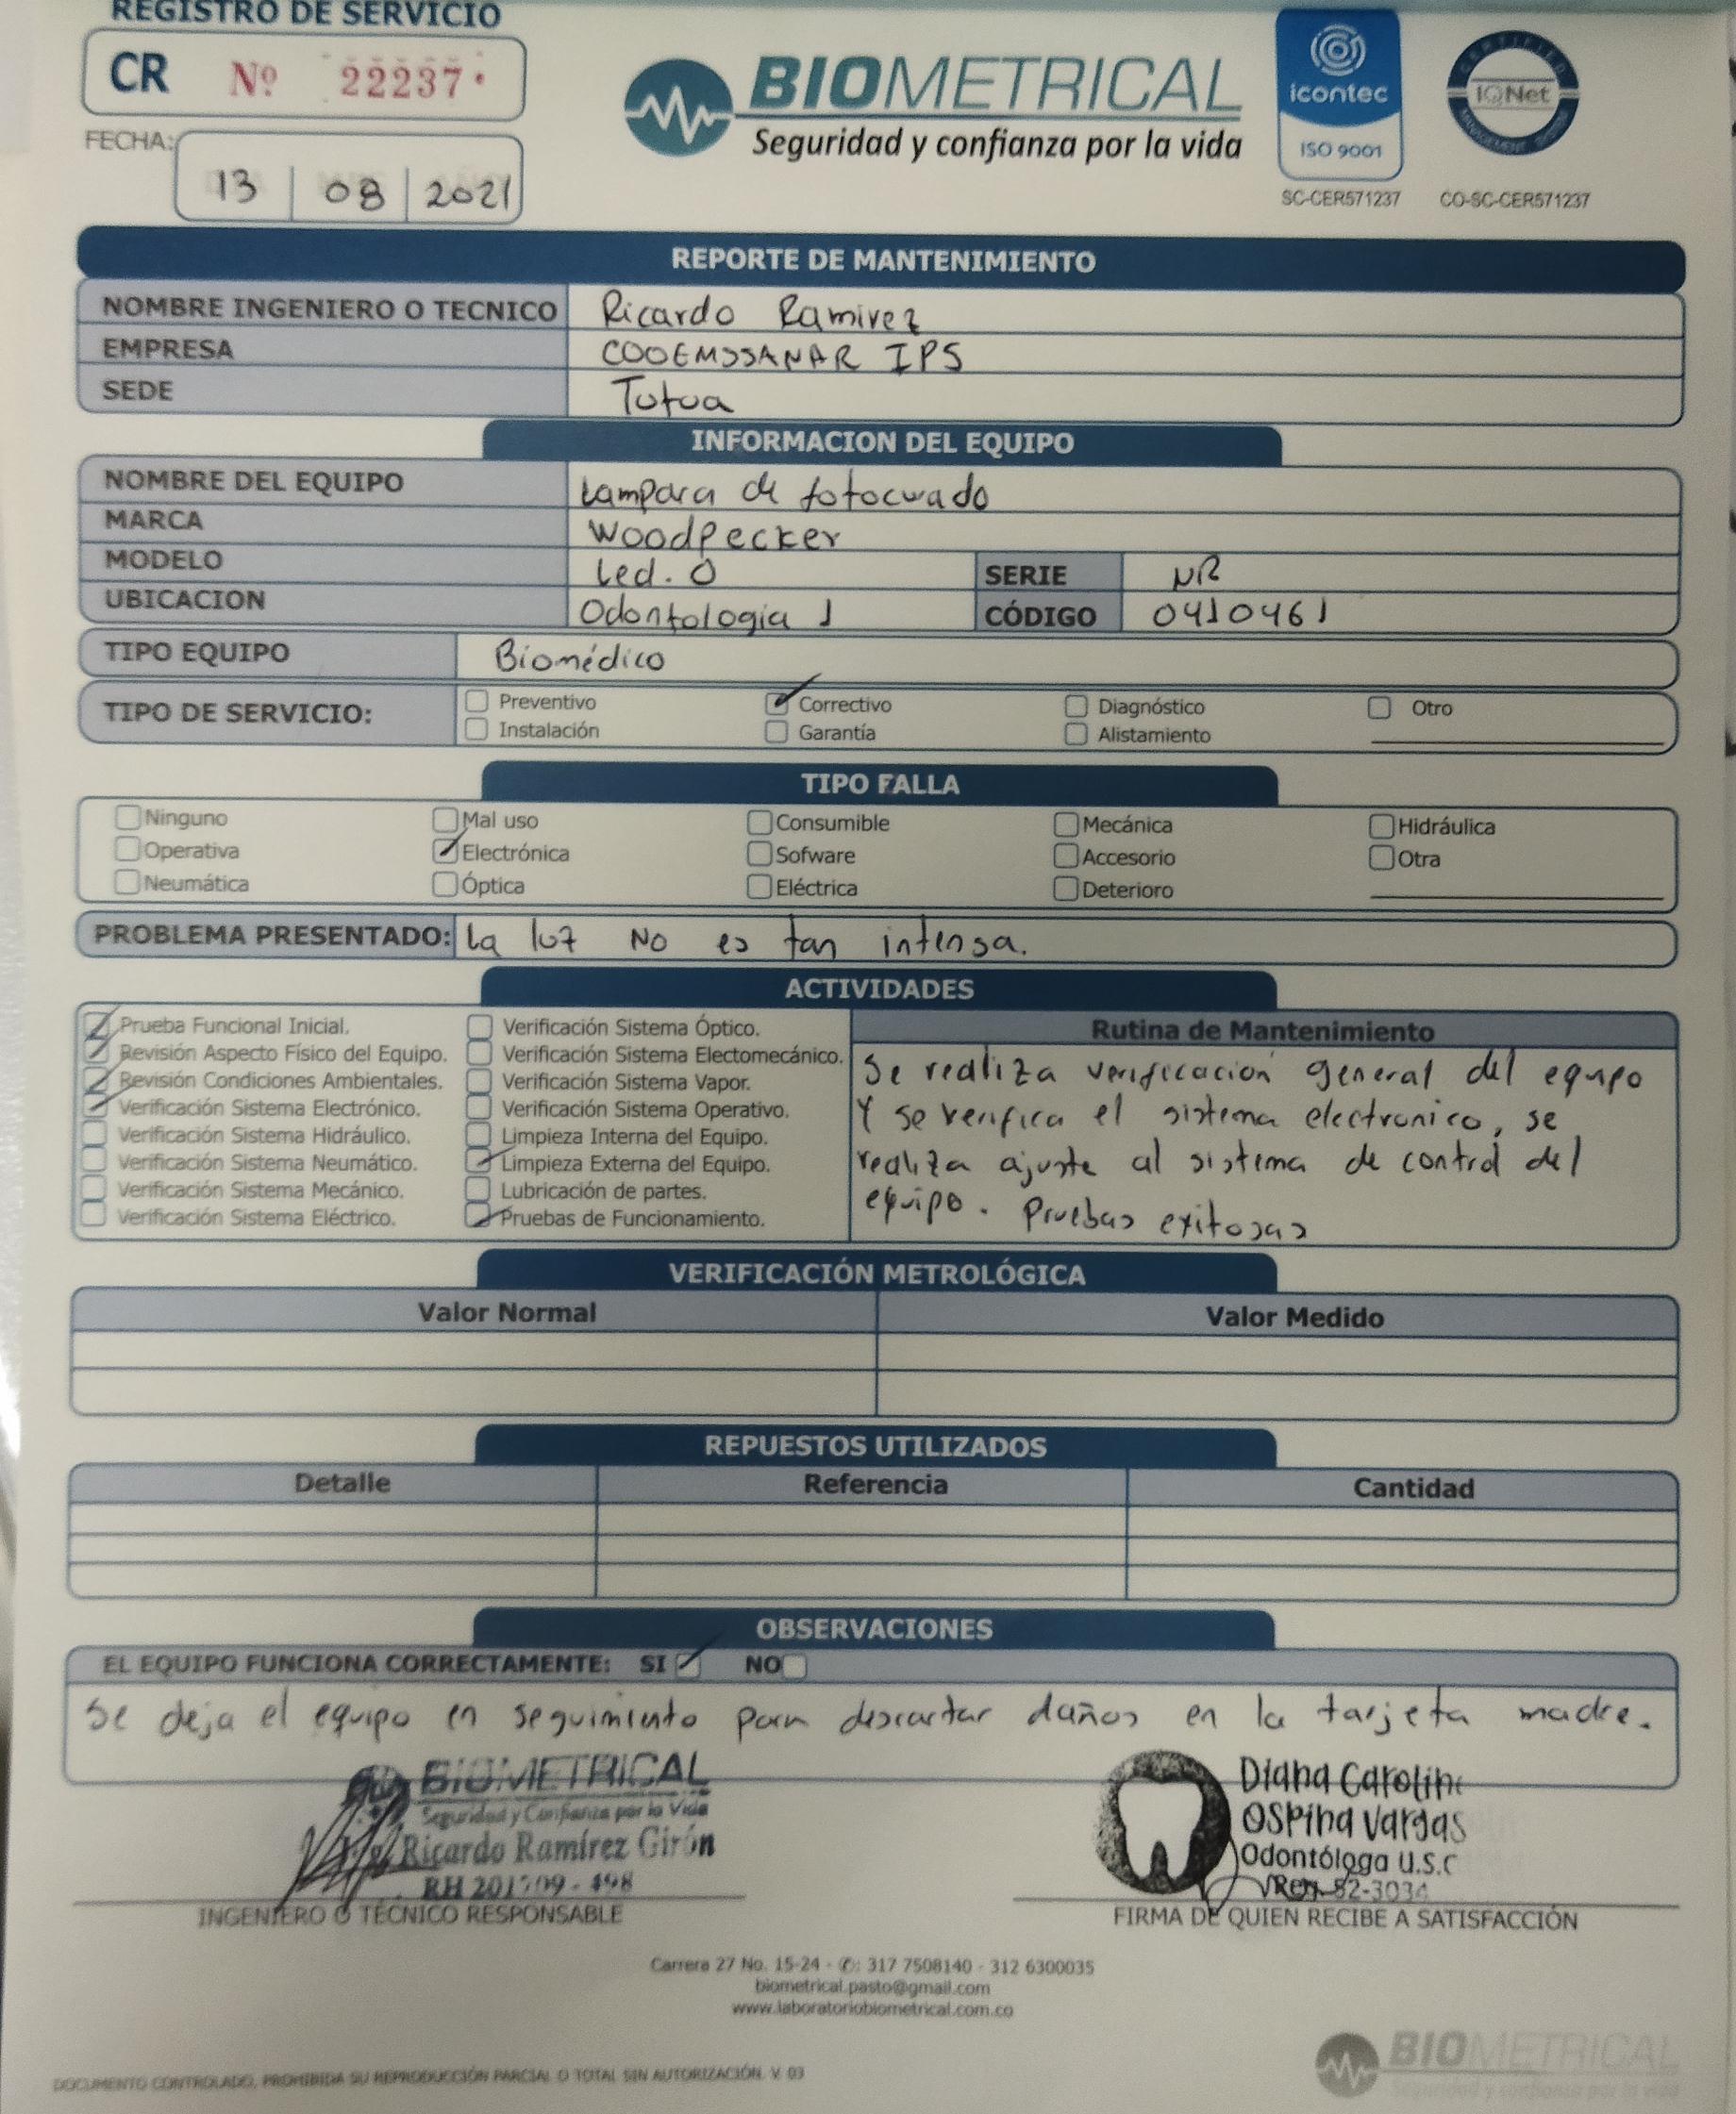 REGISTRO DE SERVICIO
CR Nº 22237
FECHA:
13 | 08 | 2021
BIOMETRICAL
Seguridad y confianza por la vida
icontec
ISO 9001
SC-CER571237
CERTIFIED
IQNet
MANAGEMENT SYSTEM
CO-SC-CER571237
REPORTE DE MANTENIMIENTO
NOMBRE INGENIERO O TECNICO Ricardo Ramirez
EMPRESA COOEMSSANAR IPS
SEDE Totoa
INFORMACION DEL EQUIPO
NOMBRE DEL EQUIPO Lampara de fotocurado
MARCA Woodpecker
MODELO Led. O SERIE NR
UBICACION Odontologia 1 CÓDIGO 0410461
TIPO EQUIPO Biomédico
TIPO DE SERVICIO: Preventivo Correctivo Diagnóstico Otro
Instalación Garantía Alistamiento
TIPO FALLA
Ninguno Mal uso Consumible Mecánica Hidráulica
Operativa Electrónica Sofware Accesorio Otra
Neumática Óptica Eléctrica Deterioro
PROBLEMA PRESENTADO: La luz No es tan intensa.
ACTIVIDADES
Prueba Funcional Inicial.
Revisión Aspecto Físico del Equipo.
Revisión Condiciones Ambientales.
Verificación Sistema Electrónico.
Verificación Sistema Hidráulico.
Verificación Sistema Neumático.
Verificación Sistema Mecánico.
Verificación Sistema Eléctrico.
Verificación Sistema Óptico.
Verificación Sistema Electomecánico.
Verificación Sistema Vapor.
Verificación Sistema Operativo.
Limpieza Interna del Equipo.
Limpieza Externa del Equipo.
Lubricación de partes.
Pruebas de Funcionamiento.
Rutina de Mantenimiento
Se realiza verificación general del equipo
Y se verifica el sistema electronico, se
realiza ajuste al sistema de control del
equipo. Pruebas exitosas
VERIFICACIÓN METROLÓGICA
Valor Normal Valor Medido
REPUESTOS UTILIZADOS
Detalle Referencia Cantidad
OBSERVACIONES
EL EQUIPO FUNCIONA CORRECTAMENTE: SI NO
Se deja el equipo en seguimiento para descartar daños en la tarjeta madre.
BIOMETRICAL
Seguridad y Confianza por la Vida
Ricardo Ramírez Girón
INGENIERO O TÉCNICO RESPONSABLE
Diana Carolina
Ospina Vargas
Odontóloga U.S.C
Reg. 52-3034
FIRMA DE QUIEN RECIBE A SATISFACCIÓN
Carrera 27 No. 15-24 - ✆: 317 7508140 - 312 6300035
biometrical.pasto@gmail.com
www.laboratoriobiometrical.com.co
BIOMETRICAL
Seguridad y confianza por la vida
DOCUMENTO CONTROLADO, PROHIBIDA SU REPRODUCCIÓN PARCIAL O TOTAL SIN AUTORIZACIÓN. V. 03